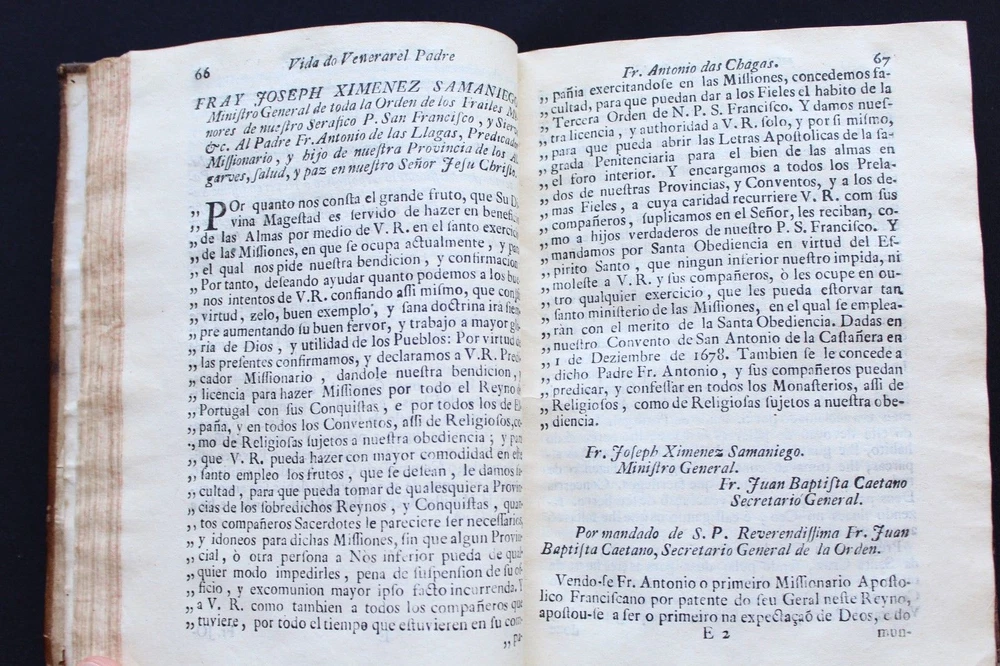 66
Vida do Venerarel Padre
FRAY JOSEPH XIMENEZ SAMANIEGO
Miniſtro General de toda la Orden de los Frailes Me
nores de nueſtro Serafico P. San Franciſco, y Sierv
&c. Al Padre Fr. Antonio de las Llagas, Predicador
Miſſionario, y hijo de nueſtra Provincia de los Al
garves, ſalud, y paz en nueſtro Señor Jeſu Chriſto.
„ POr quanto nos conſta el grande fruto, que Su Di
„ vina Mageſtad es ſervido de hazer en benefici
„ de las Almas por medio de V. R. en el ſanto exercici
„ de las Miſſiones, en que ſe ocupa actualmente, y para
„ el qual nos pide nueſtra bendicion, y confirmacion
„ Por tanto, deſeando ayudar quanto podemos a los bue
„ nos intentos de V.R. confiando aſſi miſmo, que con ſu
„ virtud, zelo, buen exemplo, y ſana doctrina irà ſiem
„ pre aumentando ſu buen fervor, y trabajo a mayor glo
„ ria de Dios, y utilidad de los Pueblos: Por virtud de
„ las preſentes confirmamos, y declaramos a V.R. Predi
„ cador Miſſionario, dandole nueſtra bendicion, y
„ licencia para hazer Miſſiones por todo el Reyno de
„ Portugal con ſus Conquiſtas, e por todos los de Eſ
„ paña, y en todos los Conventos, aſſi de Religioſos, co
„ mo de Religioſas ſujetos a nueſtra obediencia; y para
„ que V. R. pueda hazer con mayor comodidad en eſte
„ ſanto empleo los frutos, que ſe deſean, le damos fa
„ cultad, para que pueda tomar de qualesquiera Provin
„ cias de los ſobredichos Reynos, y Conquiſtas, quan
„ tos compañeros Sacerdotes le pareciere ſer neceſſarios,
„ y idoneos para dichas Miſſiones, ſin que algun Provin
„ cial, ò otra perſona a Nòs inferior pueda de qual
„ quier modo impedirles, pena de ſuſpenſion de ſu oſ
„ ficio, y excomunion mayor ipſo facto incurrenda. Y
„ a V. R. como tambien a todos los compañeros que
„ tuviere, por todo el tiempo que eſtuvieren en ſu com
„ pa-
Fr. Antonio das Chagas.
67
„ pañia exercitandoſe en las Miſſiones, concedemos fa-
„ cultad, para que puedan dar a los Fieles el habito de la
„ Tercera Orden de N. P. S. Franciſco. Y damos nueſ-
„ tra licencia, y authoridad a V. R. ſolo, y por ſi miſmo,
„ para que pueda abrir las Letras Apoſtolicas de la ſa-
„ grada Penitenciaria para el bien de las almas en
„ el foro interior. Y encargamos a todos los Prela-
„ dos de nueſtras Provincias, y Conventos, y a los de-
„ mas Fieles, a cuya caridad recurriere V. R. com ſus
„ compañeros, ſuplicamos en el Señor, les reciban, co-
„ mo a hijos verdaderos de nueſtro P. S. Franciſco. Y
„ mandamos por Santa Obediencia en virtud del Eſ-
„ pirito Santo, que ningun inferior nueſtro impida, ni
„ moleſte a V. R. y ſus compañeros, ò les ocupe en ou-
„ tro qualquier exercicio, que les pueda eſtorvar tan
„ ſanto miniſterio de las Miſſiones, en el qual ſe emplea-
„ ràn con el merito de la Santa Obediencia. Dadas en
„ nueſtro Convento de San Antonio de la Caſtañera en
„ 1 de Deziembre de 1678. Tambien ſe le concede a
„ dicho Padre Fr. Antonio, y ſus compañeros puedan
„ predicar, y confeſſar en todos los Monaſterios, aſſi de
„ Religioſos, como de Religioſas ſujetos a nueſtra obe-
„ diencia.
Fr. Joſeph Ximenez Samaniego.
Miniſtro General.
Fr. Juan Baptiſta Caetano
Secretario General.
Por mandado de S. P. Reverendiſſima Fr. Juan
Baptiſta Caetano, Secretario General de la Orden.
Vendo-ſe Fr. Antonio o primeiro Miſſionario Apoſto-
lico Franciſcano por patente do ſeu Geral neſte Reyno,
apoſtou-ſe a ſer o primeiro na expectaçaõ de Deos, e do
E 2
mun-